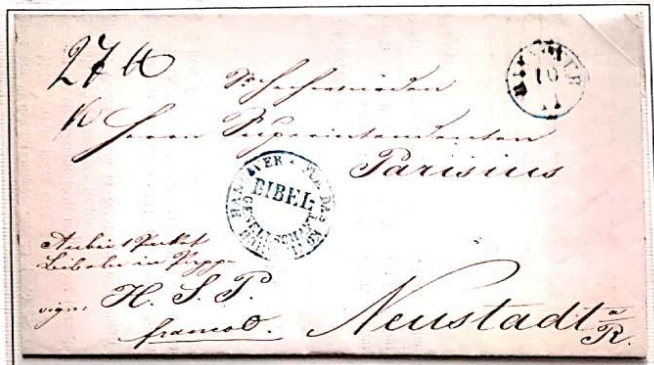 27 ℔
HANNOVER
10
11
Sr Hochwürden
Herrn Superintendenten
Parisius
HANNOVER
BIBEL
GESELLSCHAFT
Anbei 1 Packet
in Pappe
sign. H. S. P.
franco.
Neustadt a/R.